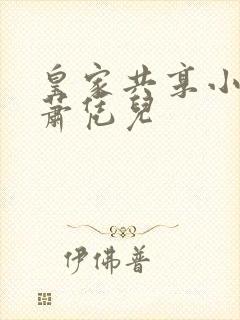 皇家共享小
蕭凭兒
伊佛普